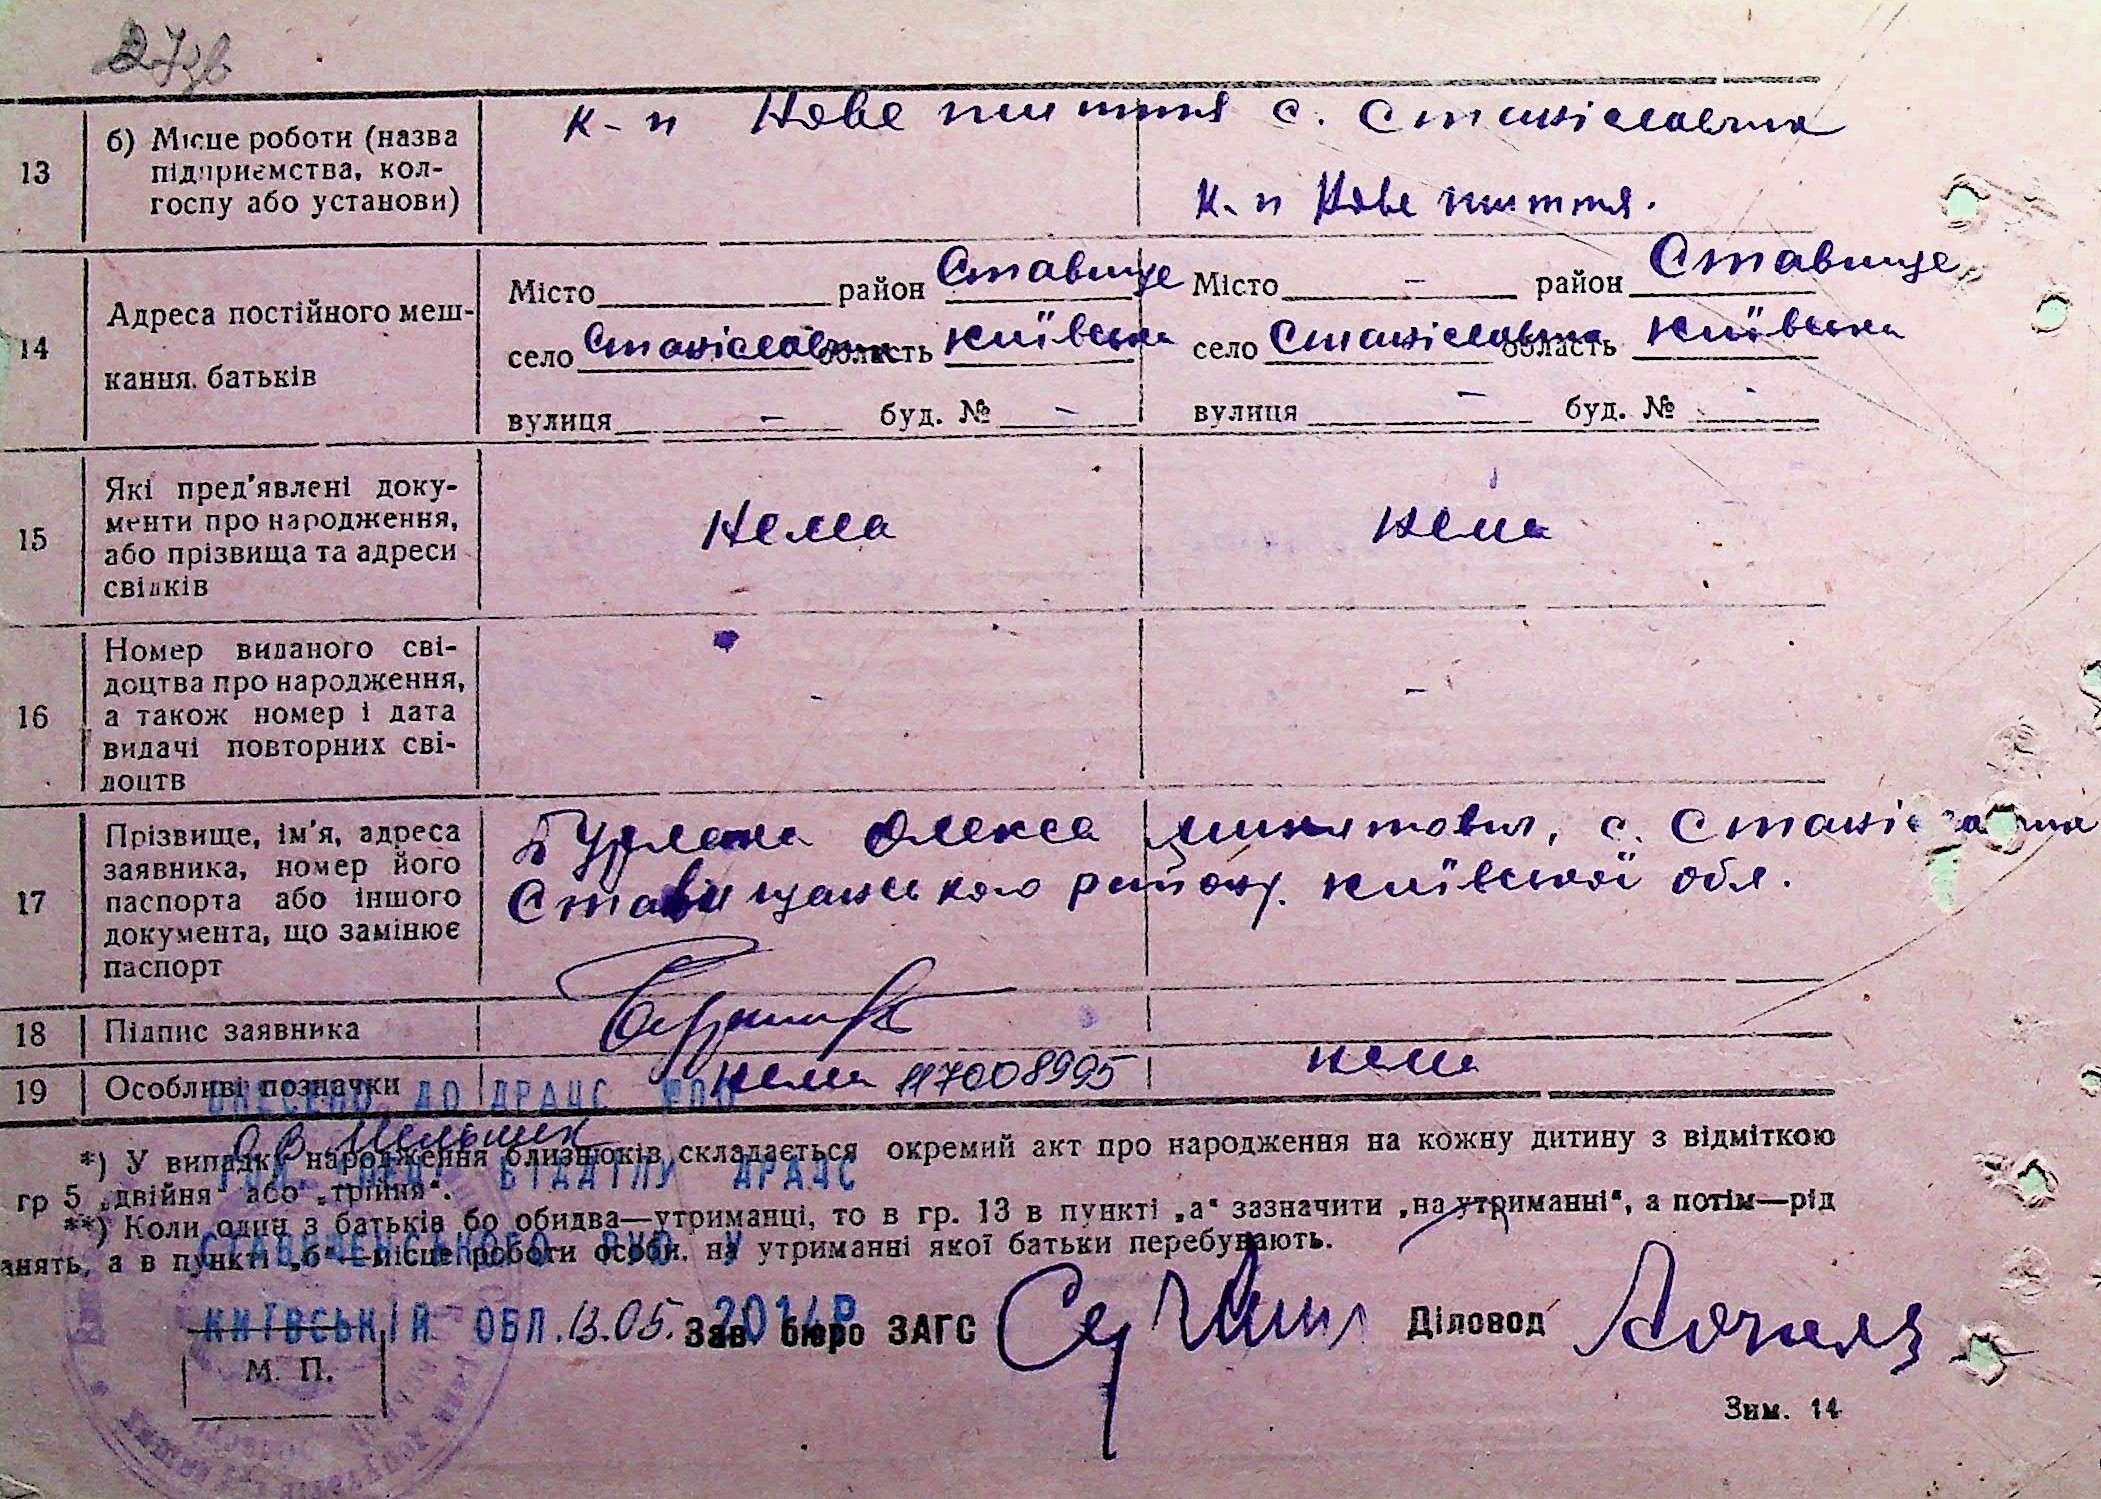 27зв
к-п Нове життя с. Станіславчик
13 б) Місце роботи (назва підприємства, колгоспу або установи)
к-п Нове життя.
14 Адреса постійного мешкання. батьків
Місто район Ставище Місто - район Ставище
село Станіславчик область Київська село Станіславчик область Київська
вулиця - буд. № - вулиця - буд. № -
15 Які пред'явлені документи про народження, або прізвища та адреси свідків
нема нема
16 Номер виданого свідоцтва про народження, а також номер і дата видачі повторних свідоцтв
- -
17 Прізвище, ім'я, адреса заявника, номер його паспорта або іншого документа, що замінює паспорт
Олекса с. Станіславчик
Ставищанського району. Київської обл.
18 Підпис заявника
19 Особливі позначки нема 117008995 нема
ВНЕСЕНО ДО ДРАЦС
*) У випадку народження близнюків складається окремий акт про народження на кожну дитину з відміткою
ВІДДІЛУ ДРАЦС
гр 5 „двійня“ або „трійня“.
**) Коли один з батьків бо обидва—утриманці, то в гр. 13 в пункті „а“ зазначити „на утриманні“, а потім—рід
анять, а в пункті „б“—місце роботи особи, на утриманні якої батьки перебувають.
КИЇВСЬКІЙ ОБЛ. 13.05. 2014Р
Зав. бюро ЗАГС Діловод
М. П.
Зим. 14